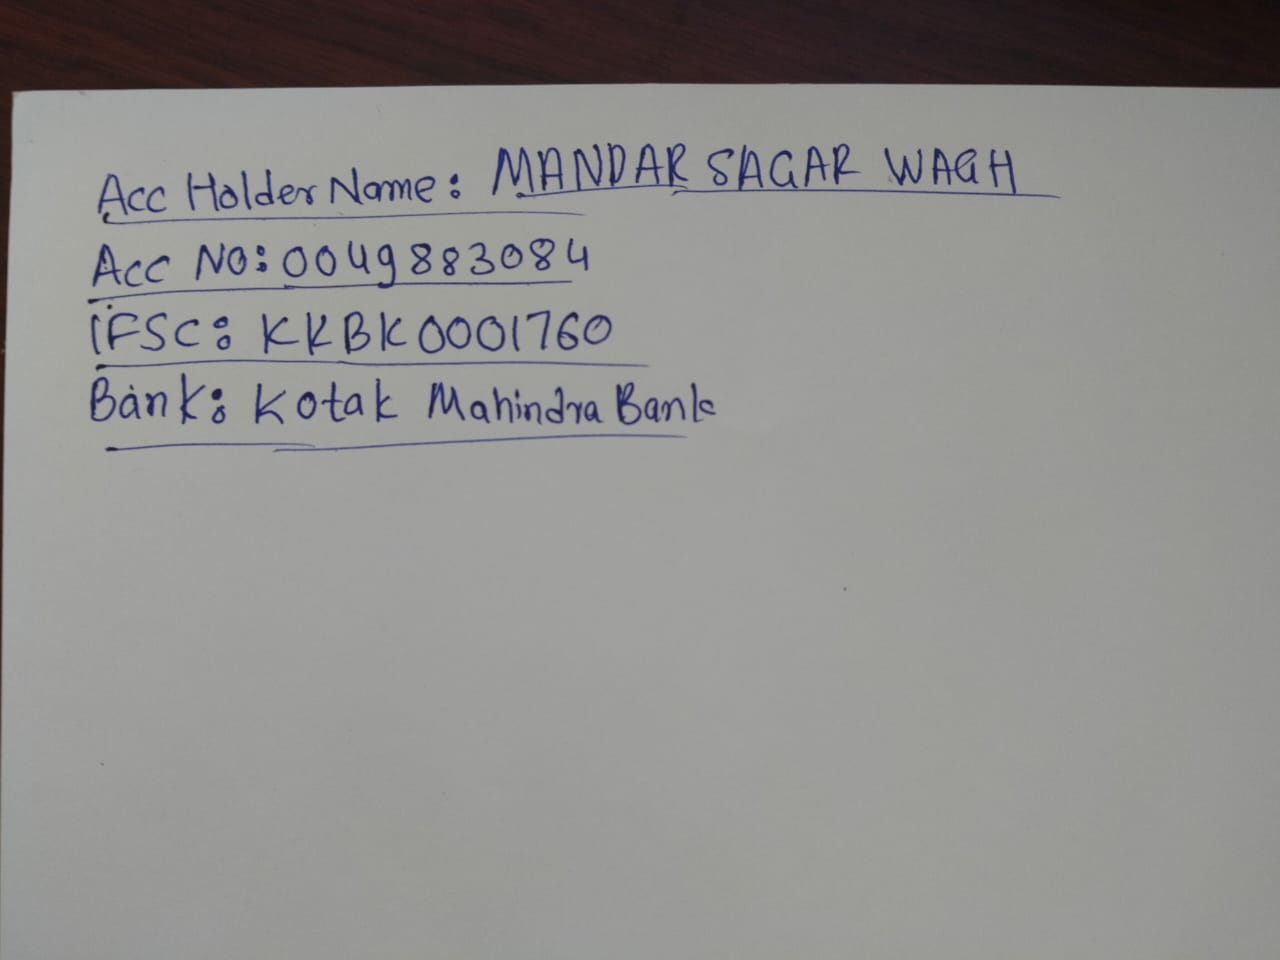 Acc Holder Name: MANDAR SAGAR WAGH
Acc No: 0049883084
IFSC: KKBK0001760
Bank: Kotak Mahindra Bank